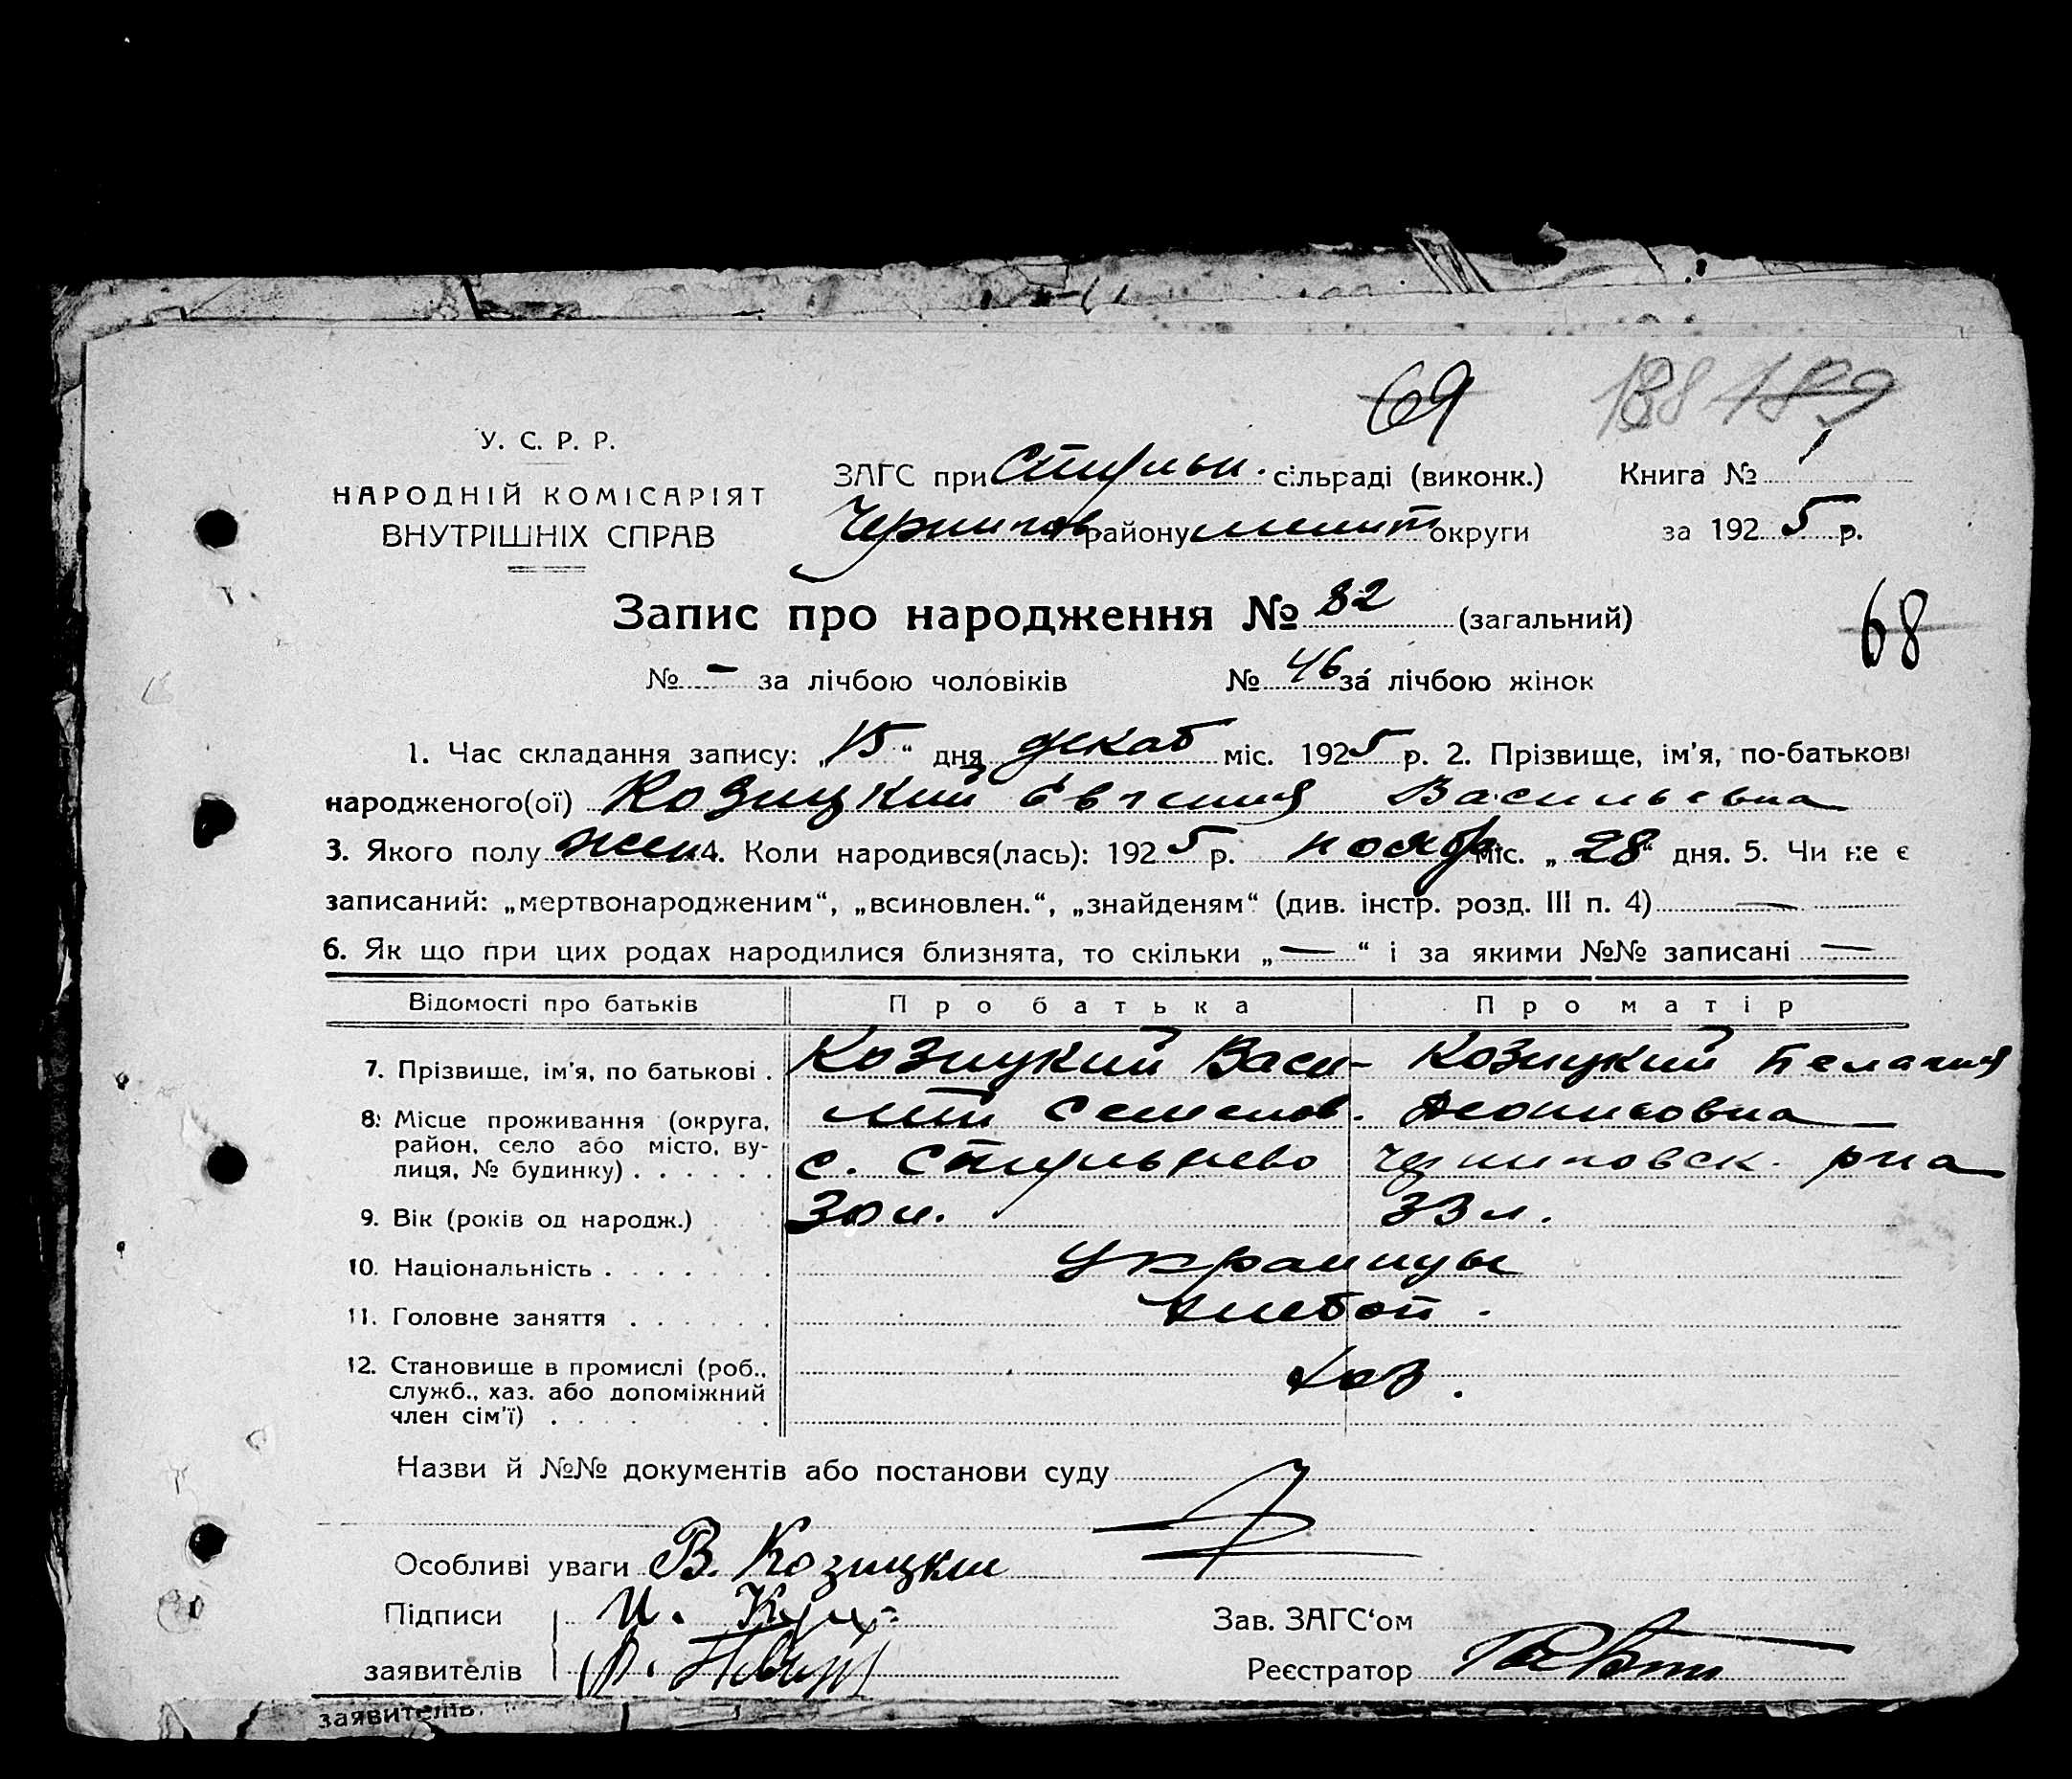 69
188 189
У. С. Р. Р.
НАРОДНІЙ КОМІСАРІЯТ
ВНУТРІШНІХ СПРАВ
ЗАГС при сільраді (виконк.) Книга № 1
Чернигов району мелит округи за 1925 р.
Запис про народження № 82 (загальний)
68
№ - за лічбою чоловіків № 46 за лічбою жінок
1. Час складання запису: „15“ дня декаб міс. 1925 р. 2. Прізвище, ім'я, по-батькові
народженого(ої) Козицкий Евгения Васильевна
3. Якого полу жен 4. Коли народився(лась): 1925 р. ноябр міс. „28“ дня. 5. Чи не є
записаний: „мертвонародженим“, „всиновлен.“, „знайденям“ (див. інстр. розд. III п. 4) —
6. Як що при цих родах народилися близнята, то скільки „—“ і за якими №№ записані —
Відомості про батьків Про батька Про матір
7. Прізвище, ім'я, по батькові . Козицкий Васи- Козицкий Пелагия
8. Місце проживання (округа, Семенов. Денисовна
район, село або місто, ву-
лиця, № будинку) . . . . . . с. Черниговск. рна
9. Вік (років од народж.) 30 л. 33 л.
10. Національність . . . . . . . Украинцы
11. Головне заняття . . . . . . хлебоп.
12. Становище в промислі (роб.,
служб., хаз. або допоміжний хоз.
член сім'ї) . . . . . .
Назви й №№ документів або постанови суду
Особливі уваги В. Козицкий
Підписи И. Зав. ЗАГС‘ом
заявителів Реєстратор
заявителів.